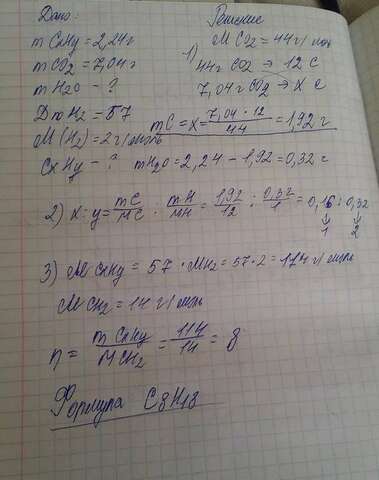 Дано:
Решение
m CxHy = 2,24г
m CO2 = 7,04г
m H2O - ?
D по H2 = 57
M(H2) = 2 г/моль
CxHy - ?
M CO2 = 44 г/моль
1) 44г CO2 → 12 C
7,04г CO2 → x C
mC = x = 7,04 · 12 / 44 = 1,92 г
mH2O = 2,24 - 1,92 = 0,32 г
2) x : y = mC / MC : mH / MH = 1,92 / 12 : 0,32 / 1 = 0,16 : 0,32
1 2
3) M CxHy = 57 · MH2 = 57 · 2 = 114 г/моль
M CH2 = 14 г/моль
n = m CxHy / M CH2 = 114 / 14 = 8
Формула C8H18